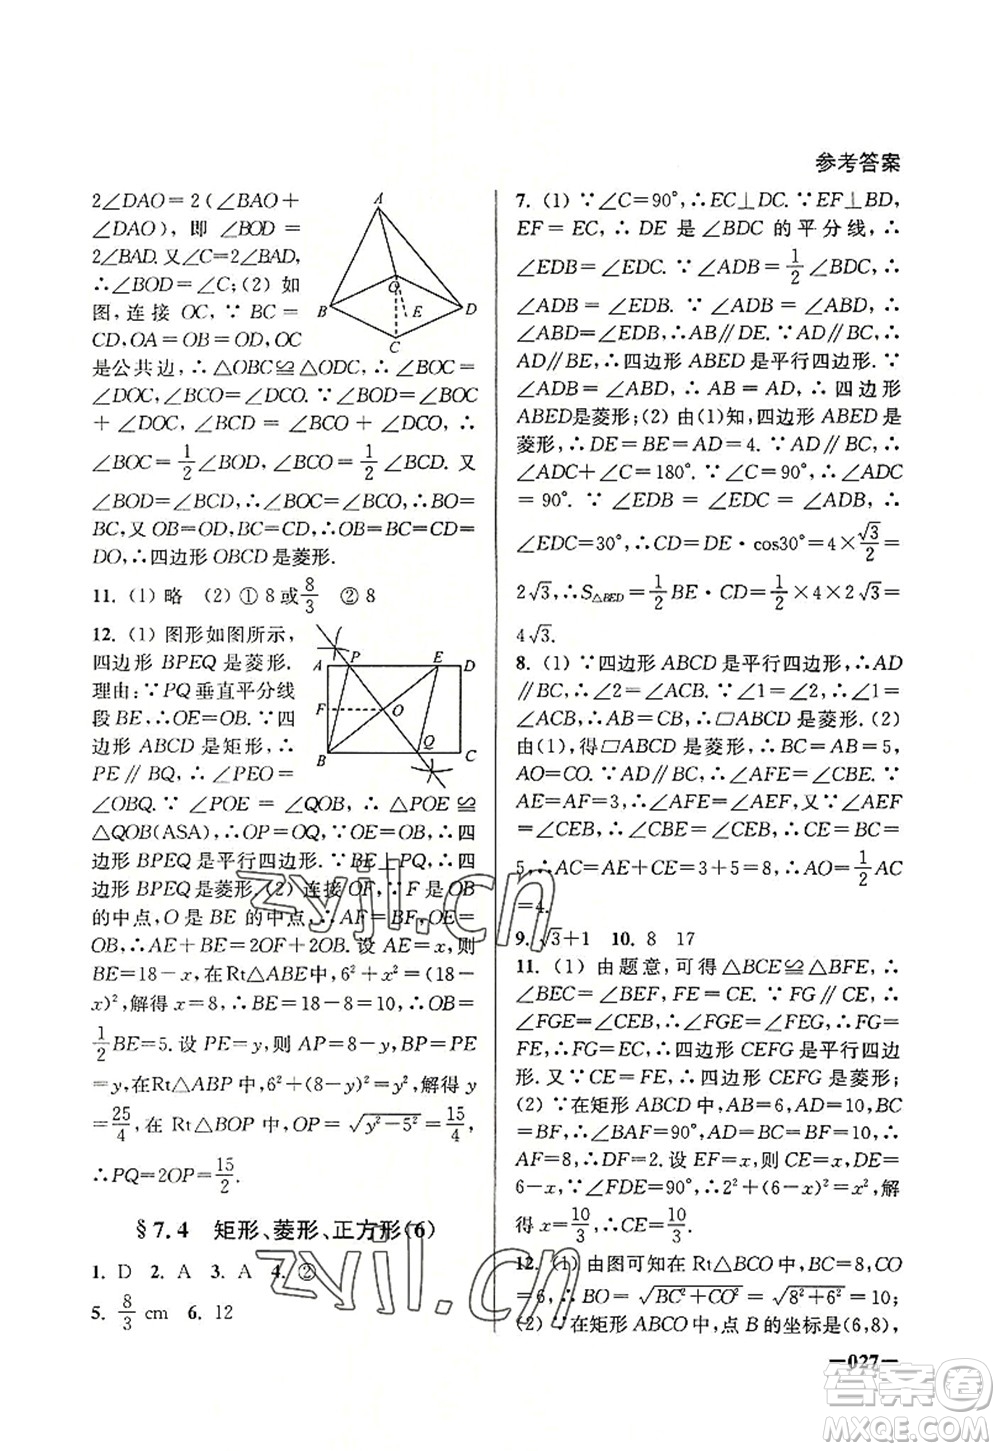 参考答案
2∠DAO=2(∠BAO+
∠DAO), 即 ∠BOD=
2∠BAD. 又 ∠C=2∠BAD,
∴∠BOD=∠C;(2) 如
图, 连接 OC, ∵ BC=
CD, OA=OB=OD, OC
是公共边, ∴ △OBC≌△ODC. ∴ ∠BOC=
∠DOC, ∠BCO=∠DCO. ∵ ∠BOD=∠BOC
+ ∠DOC, ∠BCD = ∠BCO + ∠DCO, ∴
∠BOC=1/2∠BOD, ∠BCO=1/2∠BCD. 又
∠BOD=∠BCD, ∴∠BOC=∠BCO, ∴BO=
BC, 又 OB=OD, BC=CD, ∴OB=BC=CD=
DO, ∴四边形 OBCD 是菱形.
A
B
O
E
D
C
11. (1) 略 (2) ① 8 或 8/3 ② 8
12. (1) 图形如图所示,
四边形 BPEQ 是菱形.
理由: ∵PQ 垂直平分线
段 BE, ∴OE=OB. ∵四
边形 ABCD 是矩形, ∴
PE∥BQ, ∴∠PEO=
∠OBQ. ∵ ∠POE = ∠QOB, ∴ △POE ≌
△QOB(ASA), ∴OP=OQ, ∵OE=OB, ∴四
边形 BPEQ 是平行四边形. ∵BE⊥PQ, ∴四
边形 BPEQ 是菱形. (2) 连接 OF, ∵F 是 AB
的中点, O 是 BE 的中点, ∴AF=BF, OE=
OB, ∴AE+BE=2OF+2OB. 设 AE=x, 则
BE=18-x, 在 Rt△ABE 中, 6²+x²=(18
-x)², 解得 x=8, ∴BE=18-8=10, ∴OB=
1/2BE=5. 设 PE=y, 则 AP=8-y, BP=PE
=y, 在 Rt△ABP 中, 6²+(8-y)²=y², 解得 y=
25/4, 在 Rt△BOP 中, OP=√(y²-5²)=15/4,
∴PQ=2OP=15/2.
A
P
E
D
F
O
B
Q
C
§7.4 矩形、菱形、正方形(6)
1. D 2. A 3. A 4. ②
5. 8/3 cm 6. 12
7. (1) ∵∠C=90°, ∴EC⊥DC. ∵EF⊥BD,
EF = EC, ∴ DE 是 ∠BDC 的平分线, ∴
∠EDB=∠EDC. ∵∠ADB=1/2∠BDC, ∴
∠ADB = ∠EDB. ∵ ∠ADB = ∠ABD, ∴
∠ABD=∠EDB, ∴AB∥DE. ∵AD∥BC, ∴
AD∥BE, ∴四边形 ABED 是平行四边形. ∵
∠ADB=∠ABD, ∴ AB = AD, ∴ 四边形
ABED是菱形;(2) 由(1)知, 四边形 ABED 是
菱形, ∴DE=BE=AD=4. ∵AD∥BC, ∴
∠ADC+∠C=180°. ∵∠C=90°, ∴∠ADC
=90°. ∵ ∠EDB = ∠EDC = ∠ADB, ∴
∠EDC=30°, ∴CD=DE·cos30°=4×√3/2=
2√3, ∴S△BED=1/2BE·CD=1/2×4×2√3=
4√3.
8. (1) ∵四边形 ABCD 是平行四边形, ∴AD
∥BC, ∴∠2=∠ACB. ∵∠1=∠2, ∴∠1=
∠ACB, ∴AB=CB, ∴▱ABCD 是菱形. (2)
由(1), 得▱ABCD 是菱形, ∴BC=AB=5,
AO=CO. ∵AD∥BC, ∴∠AFE=∠CBE. ∵
AE=AF=3, ∴∠AFE=∠AEF, 又∵∠AEF
=∠CEB, ∴∠CBE=∠CEB, ∴CE=BC=
5, ∴AC=AE+CE=3+5=8, ∴AO=1/2AC
=4.
9. √3+1 10. 8 17
11. (1) 由题意, 可得△BCE≌△BFE, ∴
∠BEC=∠BEF, FE=CE. ∵ FG∥CE, ∴
∠FGE=∠CEB, ∴∠FGE=∠FEG, ∴FG=
FE, ∴FG=EC, ∴四边形 CEFG 是平行四边
形. 又∵CE=FE, ∴四边形 CEFG 是菱形;
(2) ∵在矩形 ABCD 中, AB=6, AD=10, BC
=BF, ∴∠BAF=90°, AD=BC=BF=10, ∴
AF=8, ∴DF=2. 设 EF=x, 则 CE=x, DE=
6-x, ∵∠FDE=90°, ∴2²+(6-x)²=x², 解
得 x=10/3, ∴CE=10/3.
12. (1) 由图可知在 Rt△BCO 中, BC=8, CO
=6, ∴BO=√(BC²+CO²)=√(8²+6²)=10;
(2) ∵在矩形 ABCO 中, 点 B 的坐标是(6,8),
—027—
zyjl.cn
zyjl.cn
答案圈
MXQE.COM